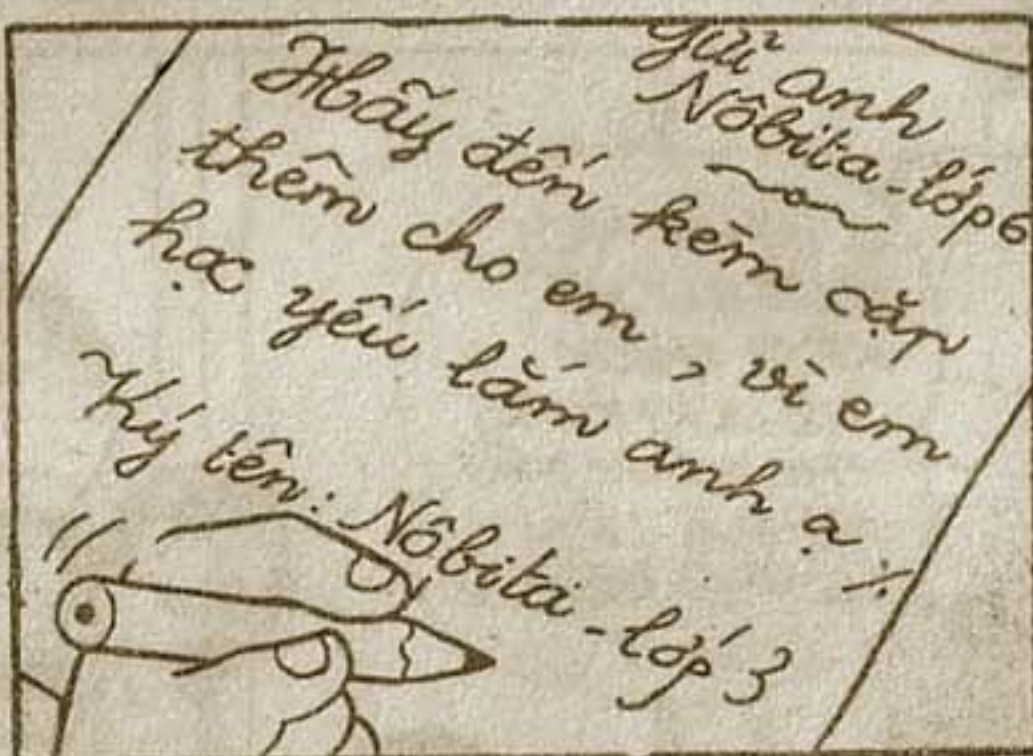 Gửi anh
Nôbita - lớp 6
Hãy đến kèm cặp
thêm cho em, vì em
học yếu lắm anh ạ ./.
Ký tên: Nôbita - lớp 3